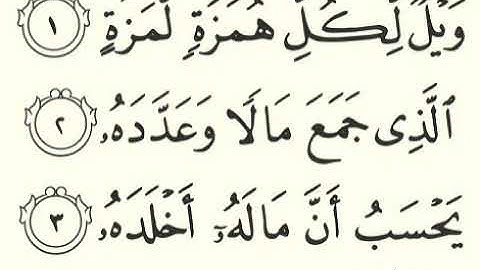 وَيْلٌ لِّكُلِّ هُمَزَةٍ لُّمَزَةٍ ١
ٱلَّذِى جَمَعَ مَالًا وَعَدَّدَهُۥ ٢
يَحْسَبُ أَنَّ مَالَهُۥٓ أَخْلَدَهُۥ ٣